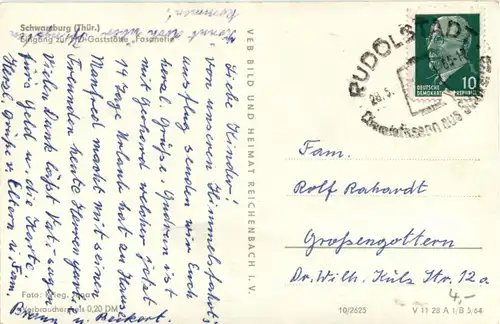 Schwarzburg (Thür.)
Eingang zur HO-Gaststätte „Fasanerie"
kommen!
Liebe Kinder!
Von unserem Himmelfahrts-
ausflug senden wir Euch
herzl. Grüße. Gudrun ist
mit Gerhard welcher jetzt
14 Tage Urlaub hat zu Hause
Manfred macht mit seinen
heute Herrenpartie
Vielen Dank läßt Vati
fürs Geld u. die Karte.
Herzl. Grüße v. Eltern u. Fam.
Foto: Krieg, Jena
Verbraucherpreis 0,20 DM
VEB BILD UND HEIMAT REICHENBACH i. V.
RUDOLSTADT
28.5.
DEUTSCHE
DEMOKRATISCHE
REPUBLIK
10
Fam.
Rolf Rahardt
Großengottern
Dr. Wilh. Külz Str. 12a
4,-
10/2625
V 11 28 A 1/B 5/64